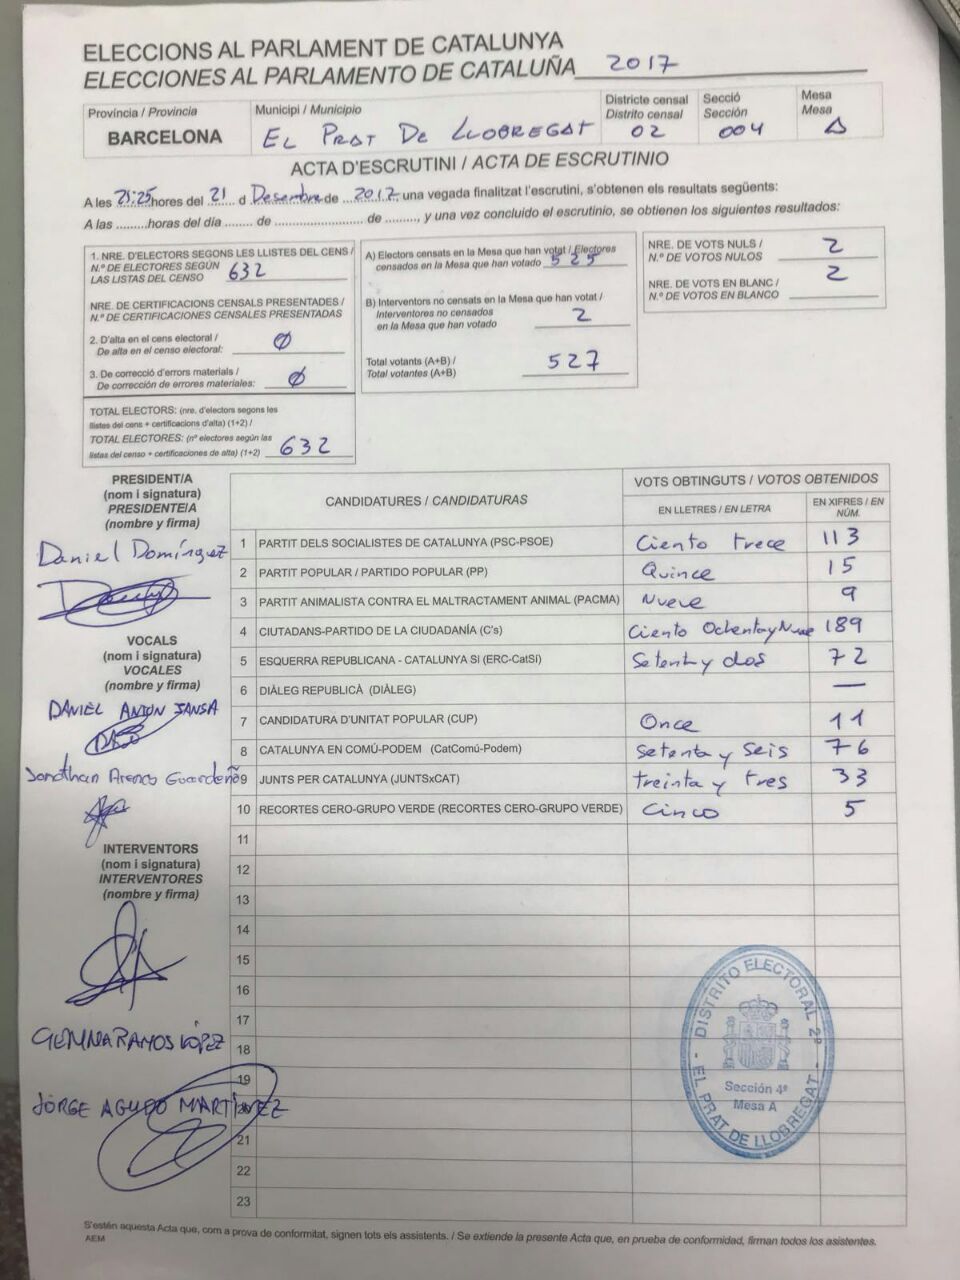 ELECCIONS AL PARLAMENT DE CATALUNYA
ELECCIONES AL PARLAMENTO DE CATALUÑA 2017
Província / Provincia
BARCELONA
Municipi / Municipio
EL PRAT DE LLOBREGAT
Districte censal
Distrito censal
02
Secció
Sección
004
Mesa
Mesa
A
ACTA D'ESCRUTINI / ACTA DE ESCRUTINIO
A les 21:25 hores del 21 d Desembre de 2017, una vegada finalitzat l'escrutini, s'obtenen els resultats següents:
A las .........horas del día ....... de ....................... de ........, y una vez concluido el escrutinio, se obtienen los siguientes resultados:
1. NRE. D'ELECTORS SEGONS LES LLISTES DEL CENS /
N.º DE ELECTORES SEGÚN
LAS LISTAS DEL CENSO 632
NRE. DE CERTIFICACIONS CENSALS PRESENTADES /
N.º DE CERTIFICACIONES CENSALES PRESENTADAS
2. D'alta en el cens electoral /
De alta en el censo electoral: 0
3. De correcció d'errors materials /
De corrección de errores materiales: 0
TOTAL ELECTORS: (nre. d'electors segons les
llistes del cens + certificacions d'alta) (1+2) /
TOTAL ELECTORES: (nº electores según las
listas del censo + certificaciones de alta) (1+2) 632
A) Electors censats en la Mesa que han votat / Electores
censados en la Mesa que han votado 525
B) Interventors no censats en la Mesa que han votat /
Interventores no censados
en la Mesa que han votado 2
Total votants (A+B) /
Total votantes (A+B) 527
NRE. DE VOTS NULS /
N.º DE VOTOS NULOS 2
NRE. DE VOTS EN BLANC /
N.º DE VOTOS EN BLANCO 2
PRESIDENT/A
(nom i signatura)
PRESIDENTE/A
(nombre y firma)
Daniel Domínguez
VOCALS
(nom i signatura)
VOCALES
(nombre y firma)
DANIEL ANTON SANSA
Jonathan
INTERVENTORS
(nom i signatura)
INTERVENTORES
(nombre y firma)
GEMMA RAMOS LÓPEZ
JORGE AGUDO MARTÍNEZ
CANDIDATURES / CANDIDATURAS
VOTS OBTINGUTS / VOTOS OBTENIDOS
EN LLETRES / EN LETRA
EN XIFRES / EN NÚM.
1 PARTIT DELS SOCIALISTES DE CATALUNYA (PSC-PSOE) Ciento trece 113
2 PARTIT POPULAR / PARTIDO POPULAR (PP) Quince 15
3 PARTIT ANIMALISTA CONTRA EL MALTRACTAMENT ANIMAL (PACMA) Nueve 9
4 CIUTADANS-PARTIDO DE LA CIUDADANÍA (C's) Ciento Ochenta y Nueve 189
5 ESQUERRA REPUBLICANA - CATALUNYA SÍ (ERC-CatSí) Setent y dos 72
6 DIÀLEG REPUBLICÀ (DIÀLEG) —
7 CANDIDATURA D'UNITAT POPULAR (CUP) Once 11
8 CATALUNYA EN COMÚ-PODEM (CatComú-Podem) Setenta y seis 76
9 JUNTS PER CATALUNYA (JUNTSxCAT) treinta y tres 33
10 RECORTES CERO-GRUPO VERDE (RECORTES CERO-GRUPO VERDE) Cinco 5
11
12
13
14
15
16
17
18
19
20
21
22
23
DISTRITO ELECTORAL 2º
Sección 4ª
Mesa A
EL PRAT DE LLOBREGAT
S'estén aquesta Acta que, com a prova de conformitat, signen tots els assistents. / Se extiende la presente Acta que, en prueba de conformidad, firman todos los asistentes.
AEM